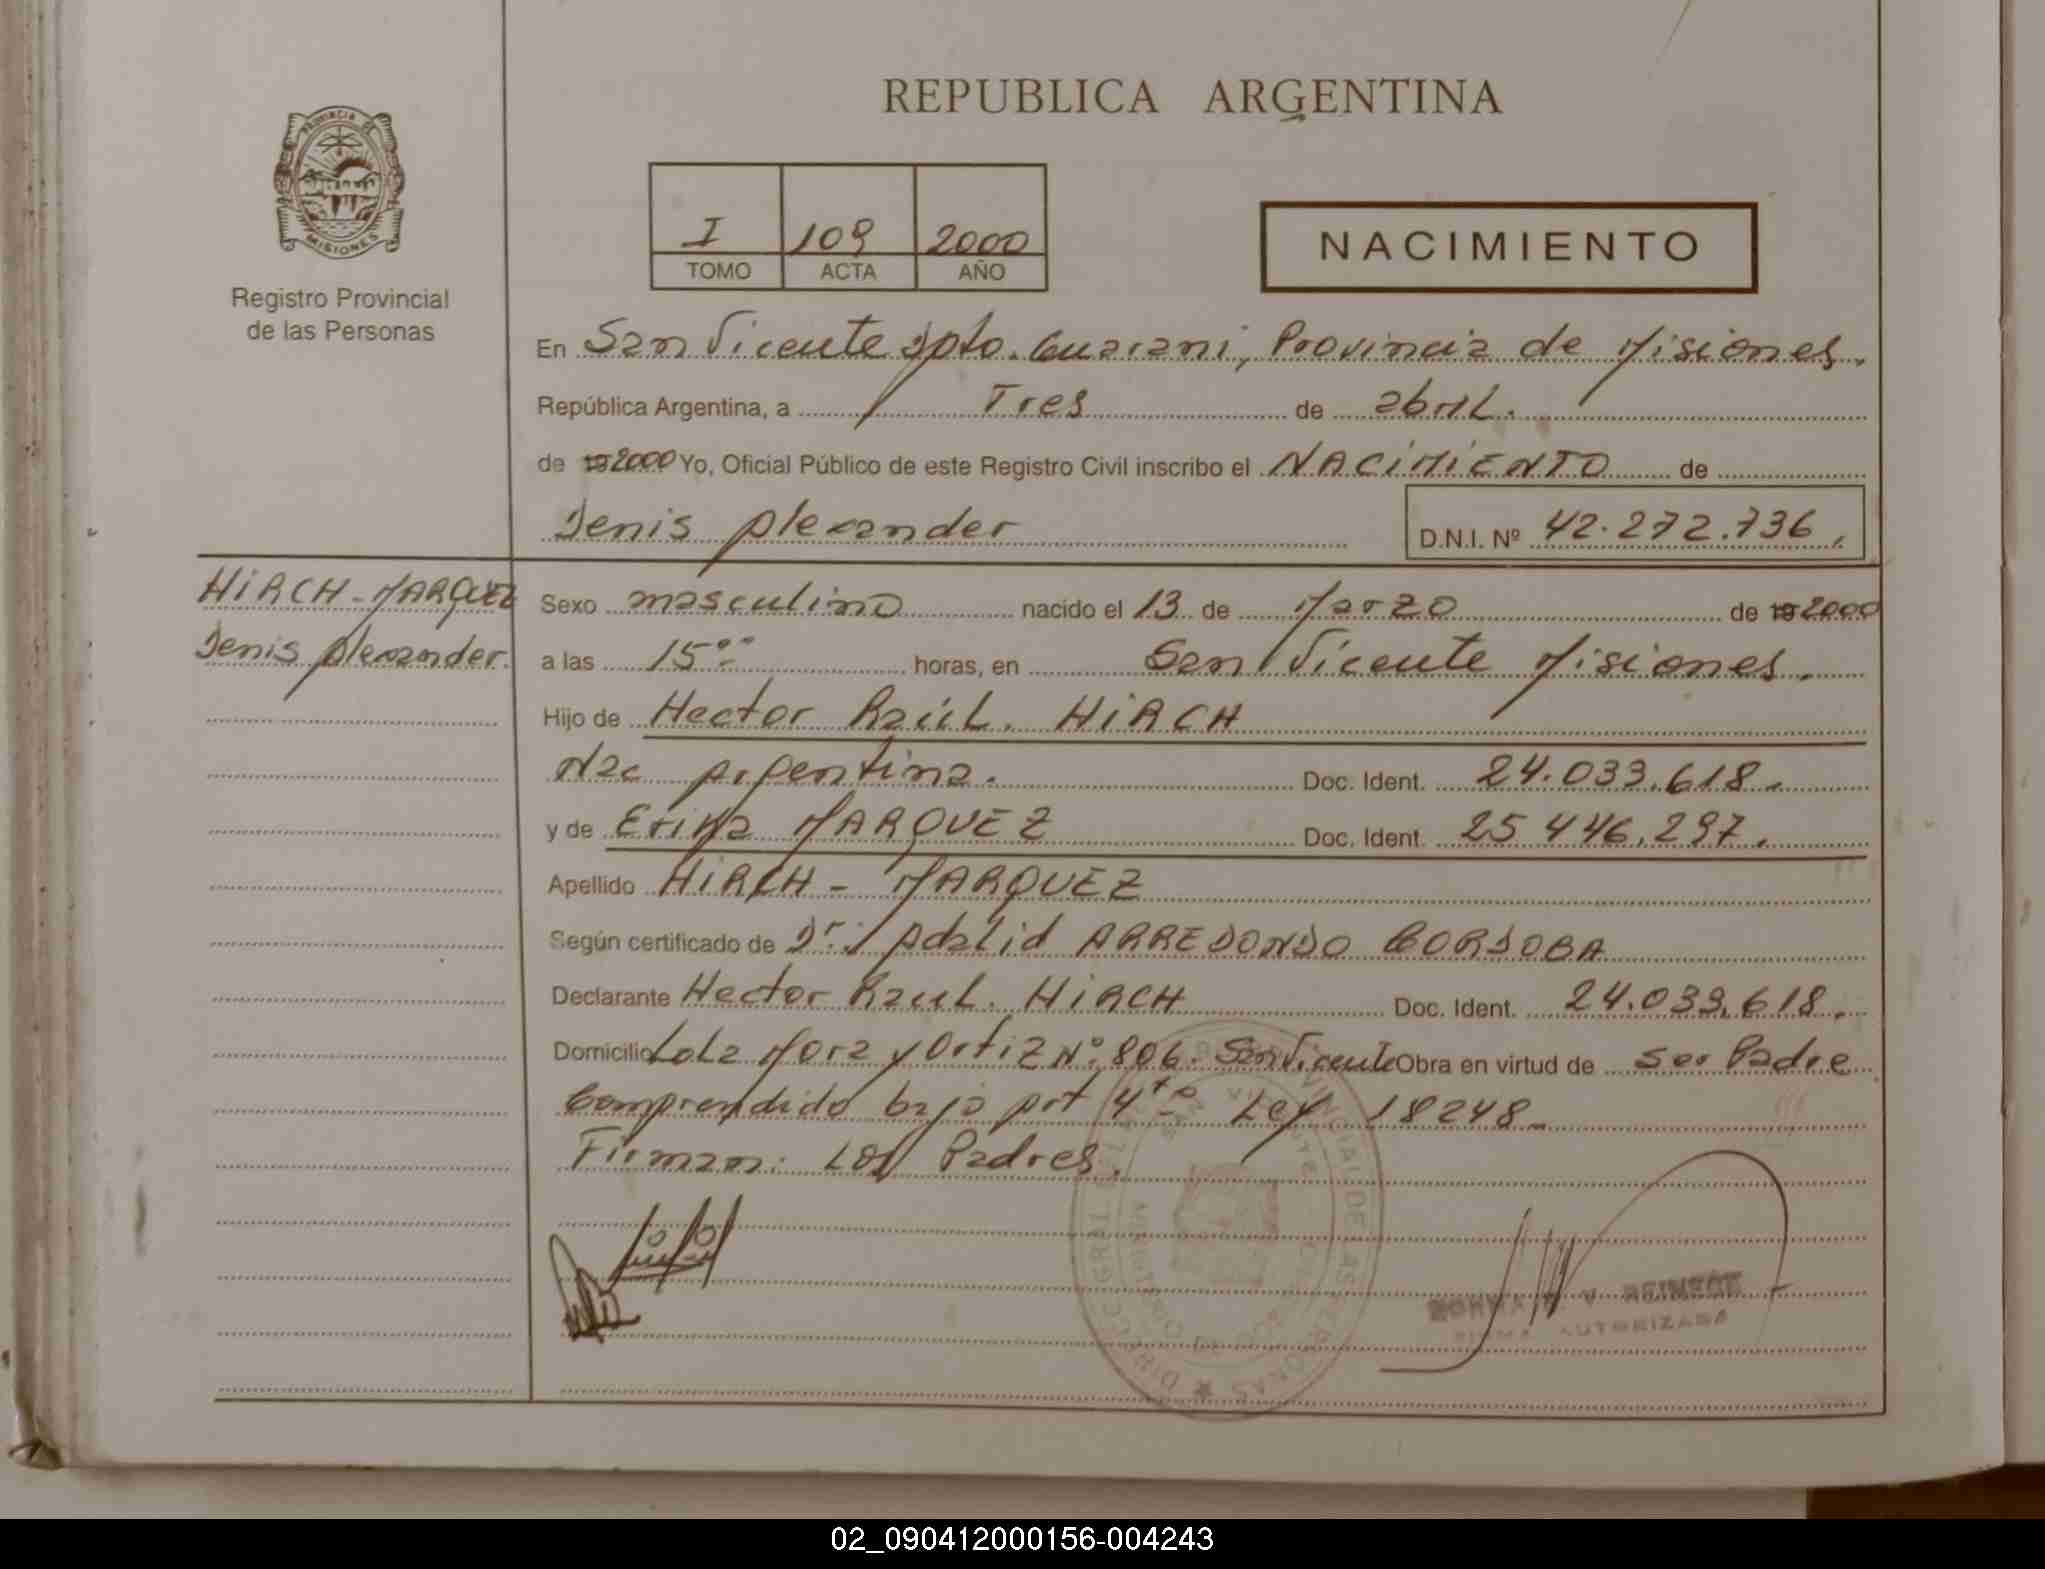 REPUBLICA ARGENTINA
PROVINCIA DE
MISIONES
Registro Provincial
de las Personas
I 109 2000
TOMO ACTA AÑO
NACIMIENTO
En San Vicente Dpto. Guarani, Provincia de Misiones.
República Argentina, a Tres de abril.
de 19 2000 Yo, Oficial Público de este Registro Civil inscribo el NACIMIENTO de
Denis Alexander D.N.I. Nº 42.272.736.
HIRCH - MARQUEZ
Denis Alexander.
Sexo masculino nacido el 13 de Marzo de 19 2000
a las 15 horas, en San Vicente Misiones.
Hijo de Hector Raúl. HIRCH
Nac Argentina. Doc. Ident. 24.033.618.
y de MARQUEZ Doc. Ident. 25 446.297.
Apellido HIRCH - MARQUEZ
Según certificado de Dr. Adalid ARREDONDO CORDOBA
Declarante Hector Raul. HIRCH Doc. Ident. 24.033.618.
Domicilio Lola Mora y Ortiz Nº 806. San Vicente Obra en virtud de ser Padre
Comprendido bajo Art 4to Ley 18248.
Firman: Los Padres.
NORMA V
FIRMA AUTORIZADA
02_090412000156-004243